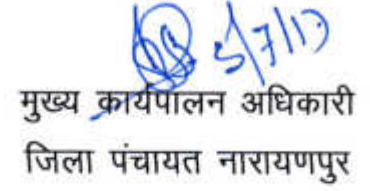 5/7/17
मुख्य कार्यपालन अधिकारी
जिला पंचायत नारायणपुर